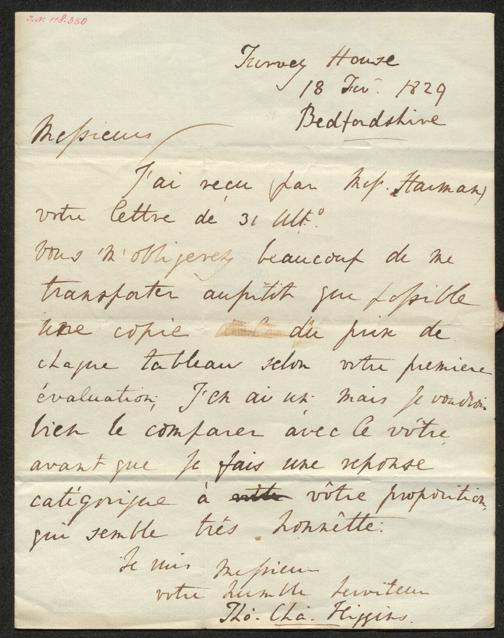 Turvey House
18 Fev. 1829
Bedfordshire
Messieurs
J'ai reçu (par Mess. Harman)
votre lettre de 31 Ult.º
Vous m'obligerez beaucoup de me
transporter aupitit que possible
une copie du prix de
chaque tableau selon votre premiere
évaluation; J'en ai un mais je voudrois
bien le comparer avec le vôtre
avant que je fais une reponse
catégorique à vôtre proposition,
qui semble très honnêtte.
Je suis Messieurs
votre humble serviteur
Tho. Cha. Higgins.